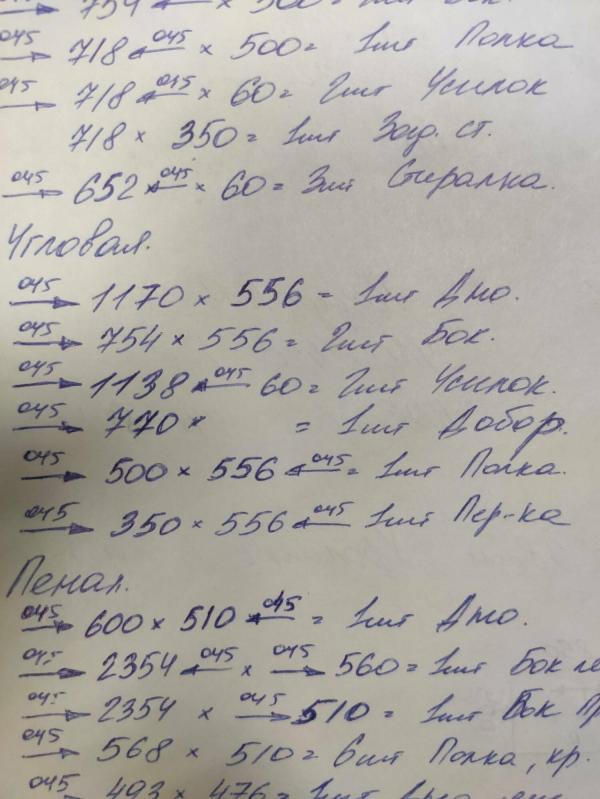 045 → 754 ← × 500 =
045 → 718 ←045 × 500 = 1шт Полка
045 → 718 ←045 × 60 = 2шт Усилок
718 × 350 = 1шт Зад. ст.
045 → 652 ←045 × 60 = 3шт Стиралка.
Угловая.
045 → 1170 × 556 = 1шт Дно.
045 → 754 × 556 = 2шт Бок.
045 → 1138 ←045 60 = 2шт Усилок.
045 → 770 × = 1шт Добор.
045 → 500 × 556 ←045 = 1шт Полка.
045 → 350 × 556 ←045 1шт Пер-ка
Пенал.
045 → 600 × 510 ←045 = 1шт Дно.
045 → 2354 ←045 × 045 → 560 = 1шт Бок ле
045 → 2354 × 045 → 510 = 1шт Бок пр
045 → 568 × 510 = 6шт Полка, кр.
045 → 493 × 476 = 1шт